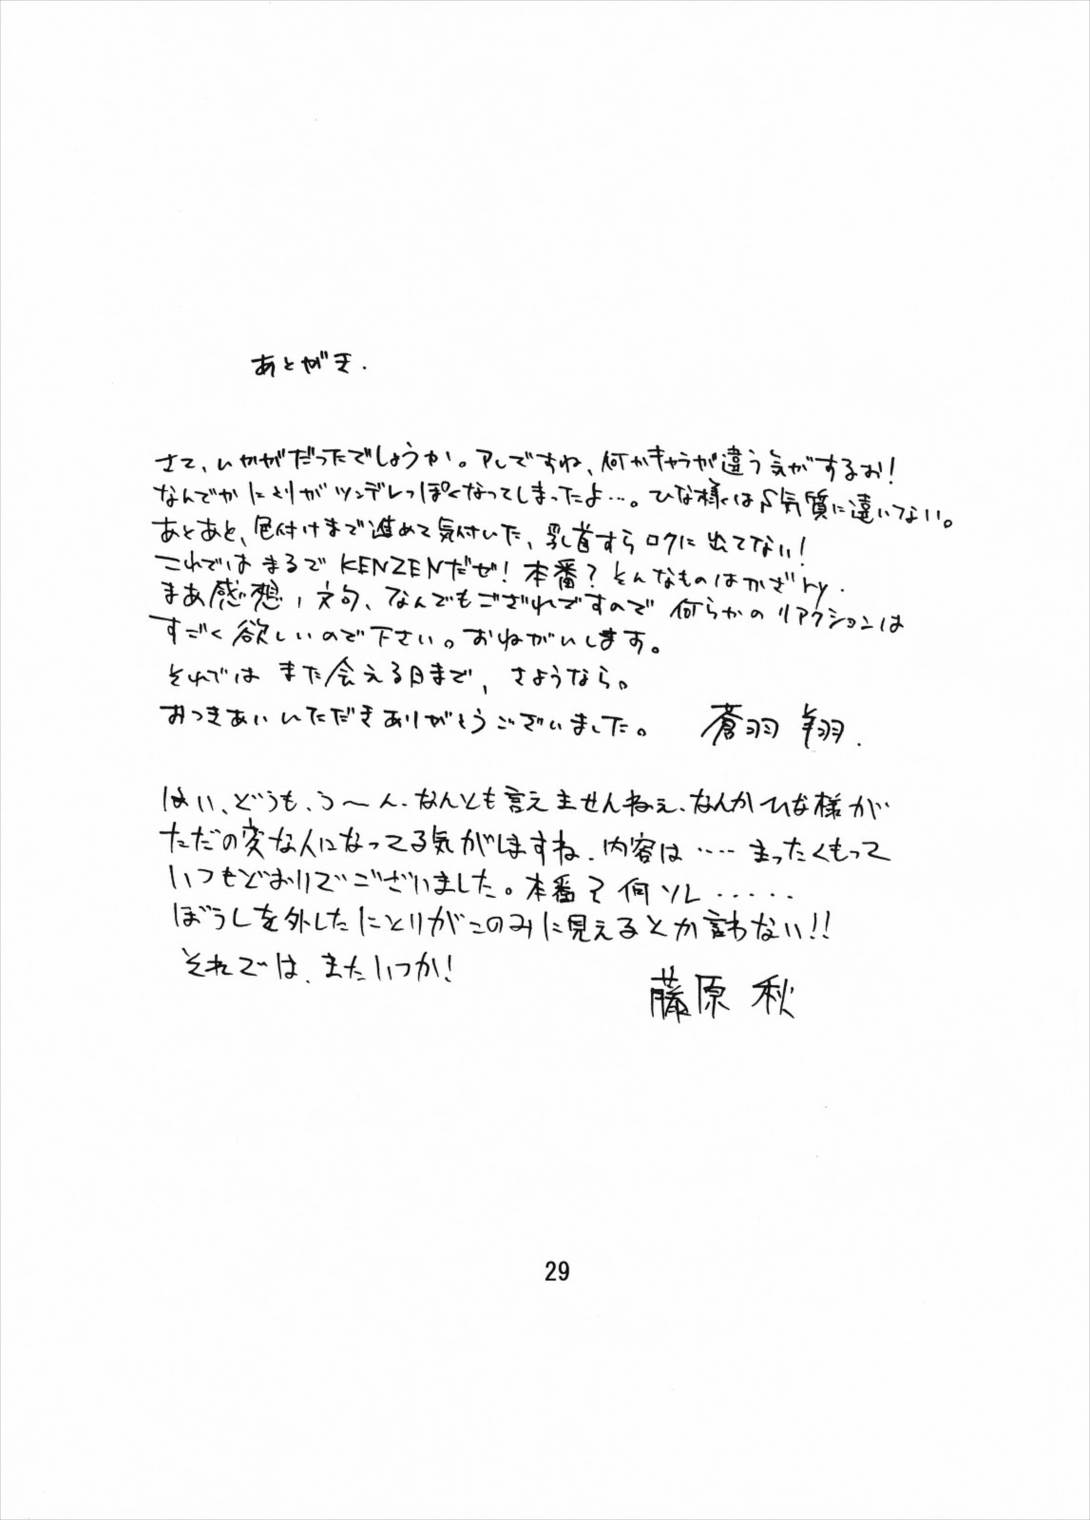 あとがき.
さて、いかがだったでしょうか。アレですね、何かキャラが違う気がするお!
なんでかにとりがツンデレっぽくなってしまったよ…。ひな様はS気質に違いない。
あとあと、色付けまで進めて気付いた、乳首すらロクに出てない!
これではまるでKENZENだぜ!本番?そんなものはかざry.
まあ感想、文句、なんでもござれですので何らかのリアクションは
すごく欲しいので下さい。おねがいします。
それではまた会える日まで、さようなら。
おつきあいいただきありがとうございました。 蒼羽 翔.
はい、どうも、う〜ん、なんとも言えませんねぇ、なんかひな様が
ただの変な人になってる気がしますね、内容は‥‥まったくもって
いつもどおりでございました。本番?何ソレ‥‥‥
ぼうしを外したにとりがこのみに見えるとか言わない!!
それでは、またいつか!
藤原 秋
29